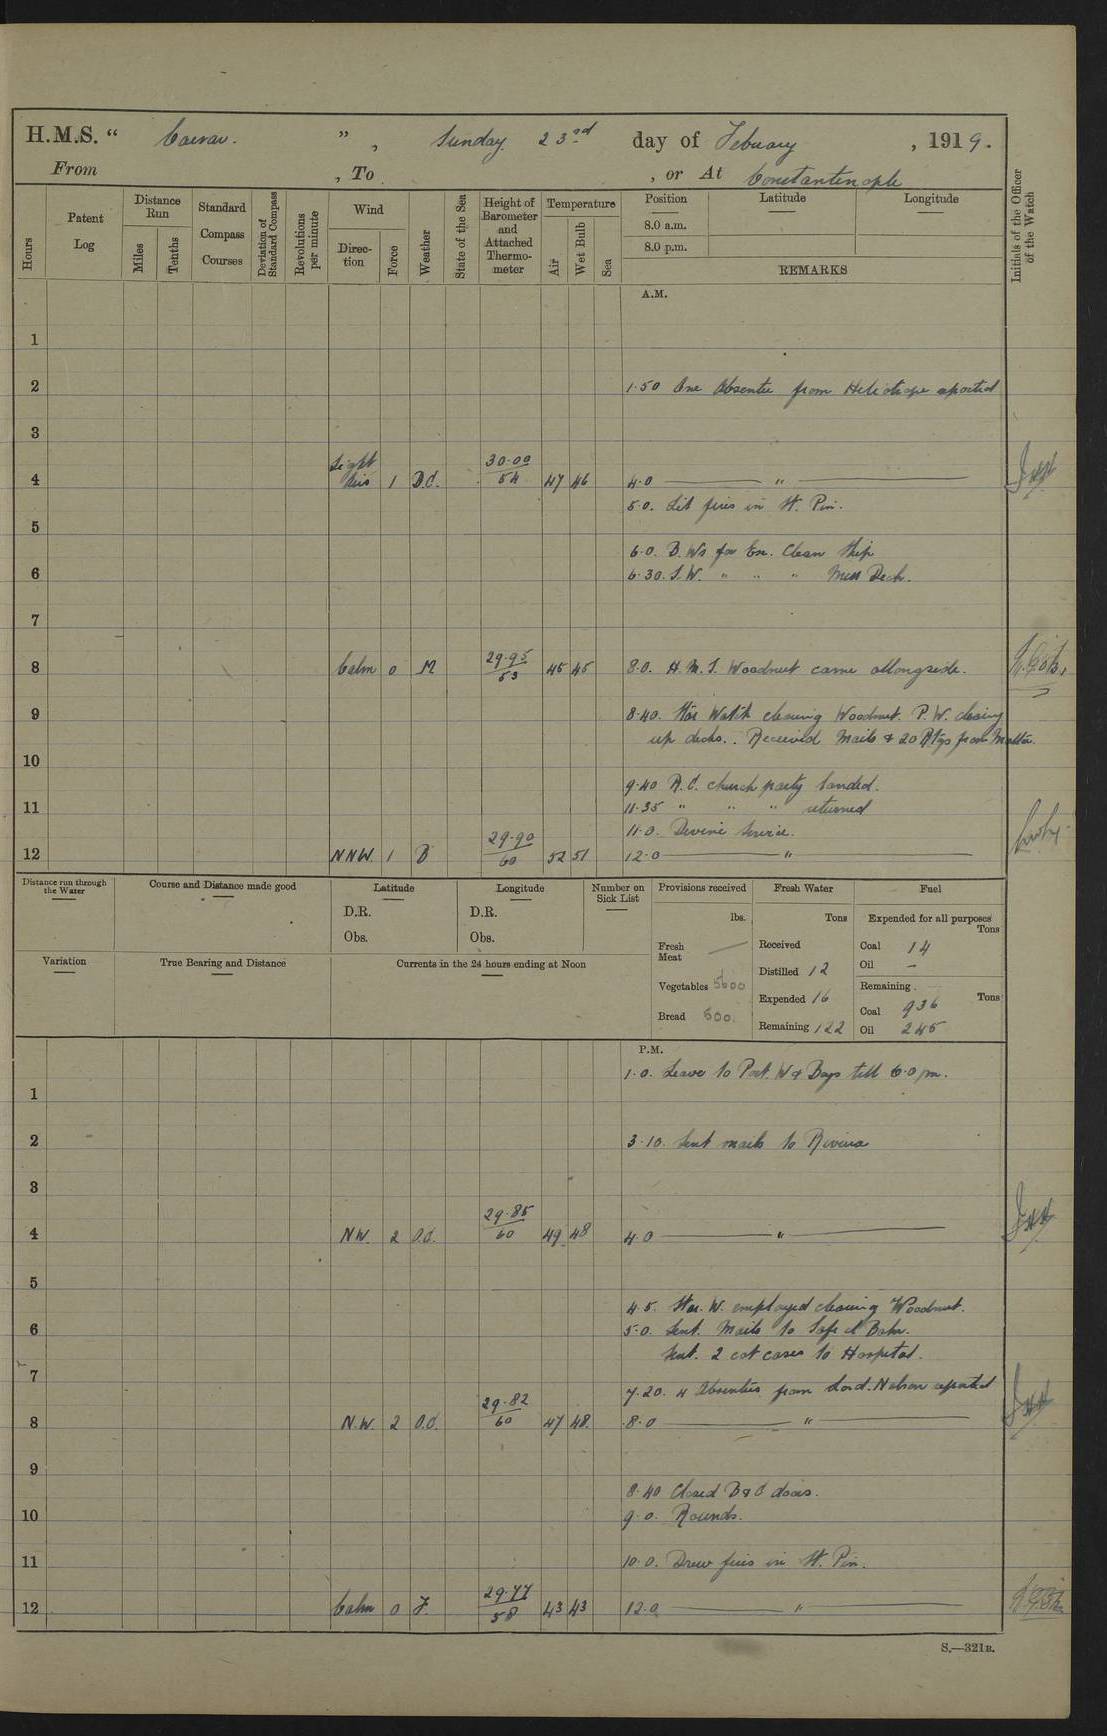 H.M.S. " Caesar. ", Sunday 23rd day of Febuary, 1919.
From , To , or At Constantinople
Hours
Patent Log
Distance Run
Miles
Tenths
Standard Compass Courses
Deviation of Standard Compass
Revolutions per minute
Wind
Direction
Force
Weather
State of the Sea
Height of Barometer and Attached Thermometer
Temperature
Air
Wet Bulb
Sea
Position
8.0 a.m.
8.0 p.m.
Latitude
Longitude
REMARKS
Initials of the Officer of the Watch
A.M.
1
2 1.50 One Absentee from Heliotrope reported
3
4 Light Airs 1 B.C. 30.00 / 54 47 46 4.0 "
5.0. Lit fires in St. Pin.
5
6.0. B.Ws for Ex. Clean Ship
6 6.30. S.W. " " " Mess Deck.
7
8 Calm 0 M 29.95 / 53 45 45 8.0. H.M.S. Woodnut came allongside.
9 8.40. Star Watch clearing Woodnut. P.W. clearing
up decks. Received Mails & 20 Rtgs from Malta.
10
9.40 R.C. church party landed.
11 11.35 " " " returned
11.0. Devine Service.
12 NNW. 1 B 29.90 / 60 52 51 12.0 "
Distance run through the Water
Course and Distance made good
Latitude
D.R.
Obs.
Longitude
D.R.
Obs.
Number on Sick List
Provisions received
lbs.
Fresh Meat
Vegetables 5600
Bread 600.
Fresh Water
Tons
Received
Distilled 12
Expended 16
Remaining 122
Fuel
Expended for all purposes
Tons
Coal 14
Oil –
Remaining
Tons
Coal 936
Oil 245
Variation
True Bearing and Distance
Currents in the 24 hours ending at Noon
P.M.
1.0. Leave to Port. W & Boys till 6.0 pm.
1
2 3.10. Sent mails to Riviera
3
4 NW. 2 O.C. 29.85 / 60 49 48 4.0 "
5
4.5. Star. W. employed clearing Woodnut.
6 5.0. Sent. Mails to Safe el Bahr.
Sent. 2 cot cases to Hospital.
7
7.20. 4 Absentees from Lord. Nelson reported
8 N.W. 2 O.C. 29.82 / 60 47 48 8.0 "
9
8.40 Closed B & C doors.
10 9.0. Rounds.
11 10.0. Drew fires in St. Pin.
12 Calm 0 F. 29.77 / 58 43 43 12.0 "
S.—321B.